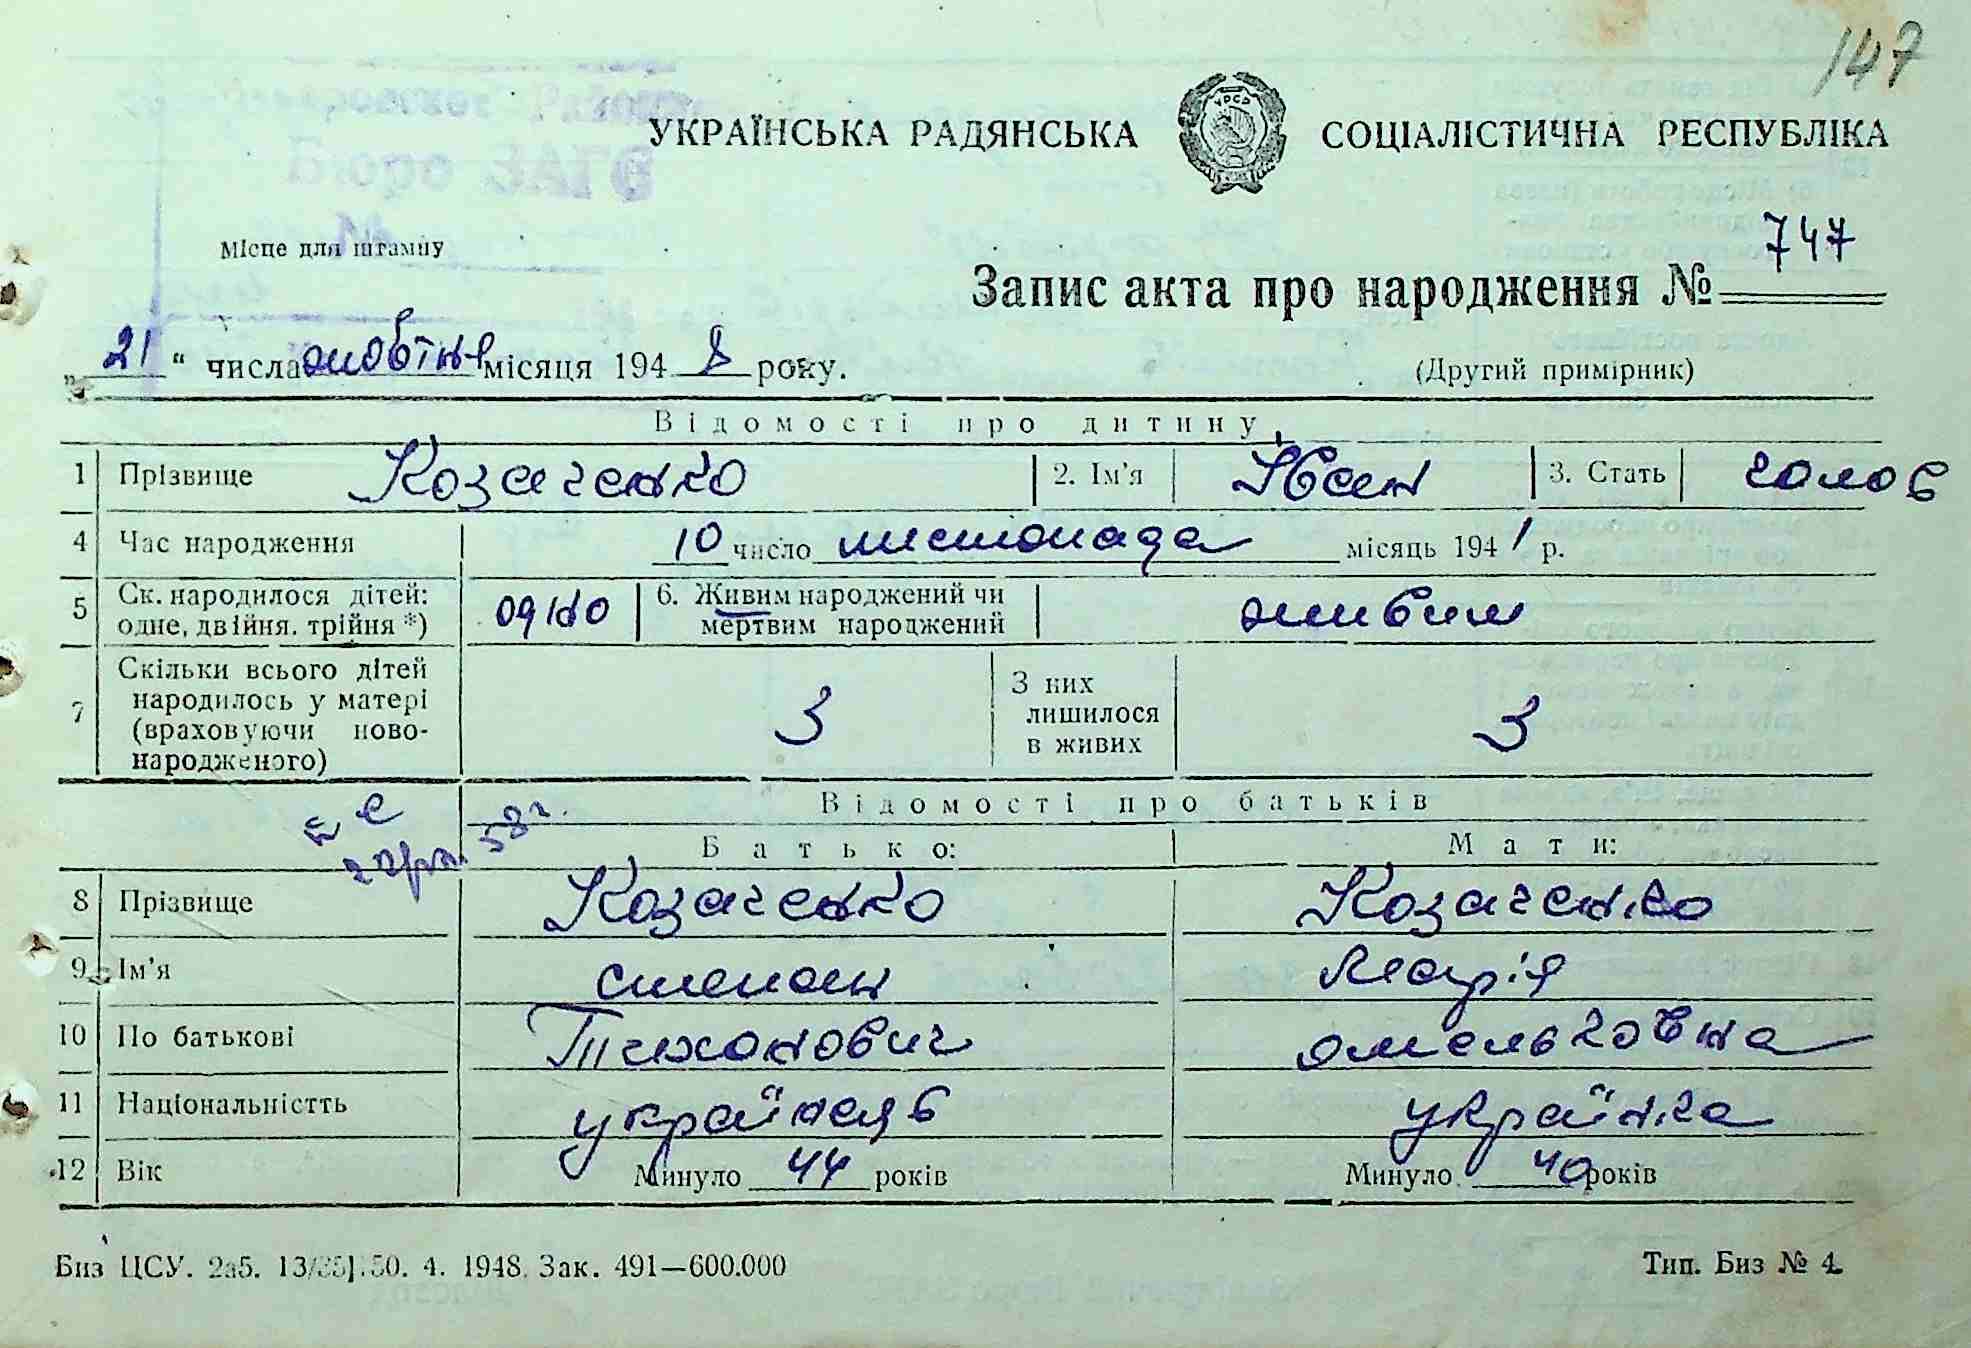 147
УКРАЇНСЬКА РАДЯНСЬКА СОЦІАЛІСТИЧНА РЕСПУБЛІКА
УРСР
Бюро ЗАГС
Місце для штампу
Запис акта про народження № 747
„21“ числа жовтня місяця 1948 року.
(Другий примірник)
Відомості про дитину
1 Прізвище Козаченко 2. Ім'я Іван 3. Стать чолов
4 Час народження 10 число листопада місяць 1941 р.
5 Ск. народилося дітей: одне, двійня, трійня *) одно 6. Живим народжений чи мертвим народжений живим
7 Скільки всього дітей народилось у матері (враховуючи ново-народженого) 3 З них лишилося в живих 3
58 г.
Відомості про батьків
Батько: Мати:
8 Прізвище Козаченко Козаченко
9 Ім'я степан Марія
10 По батькові Тихонович омельковна
11 Національністть українець українка
12 Вік Минуло 44 років Минуло 40 років
Биз ЦСУ. 1948. Зак. 491—600.000
Тип. Биз № 4.